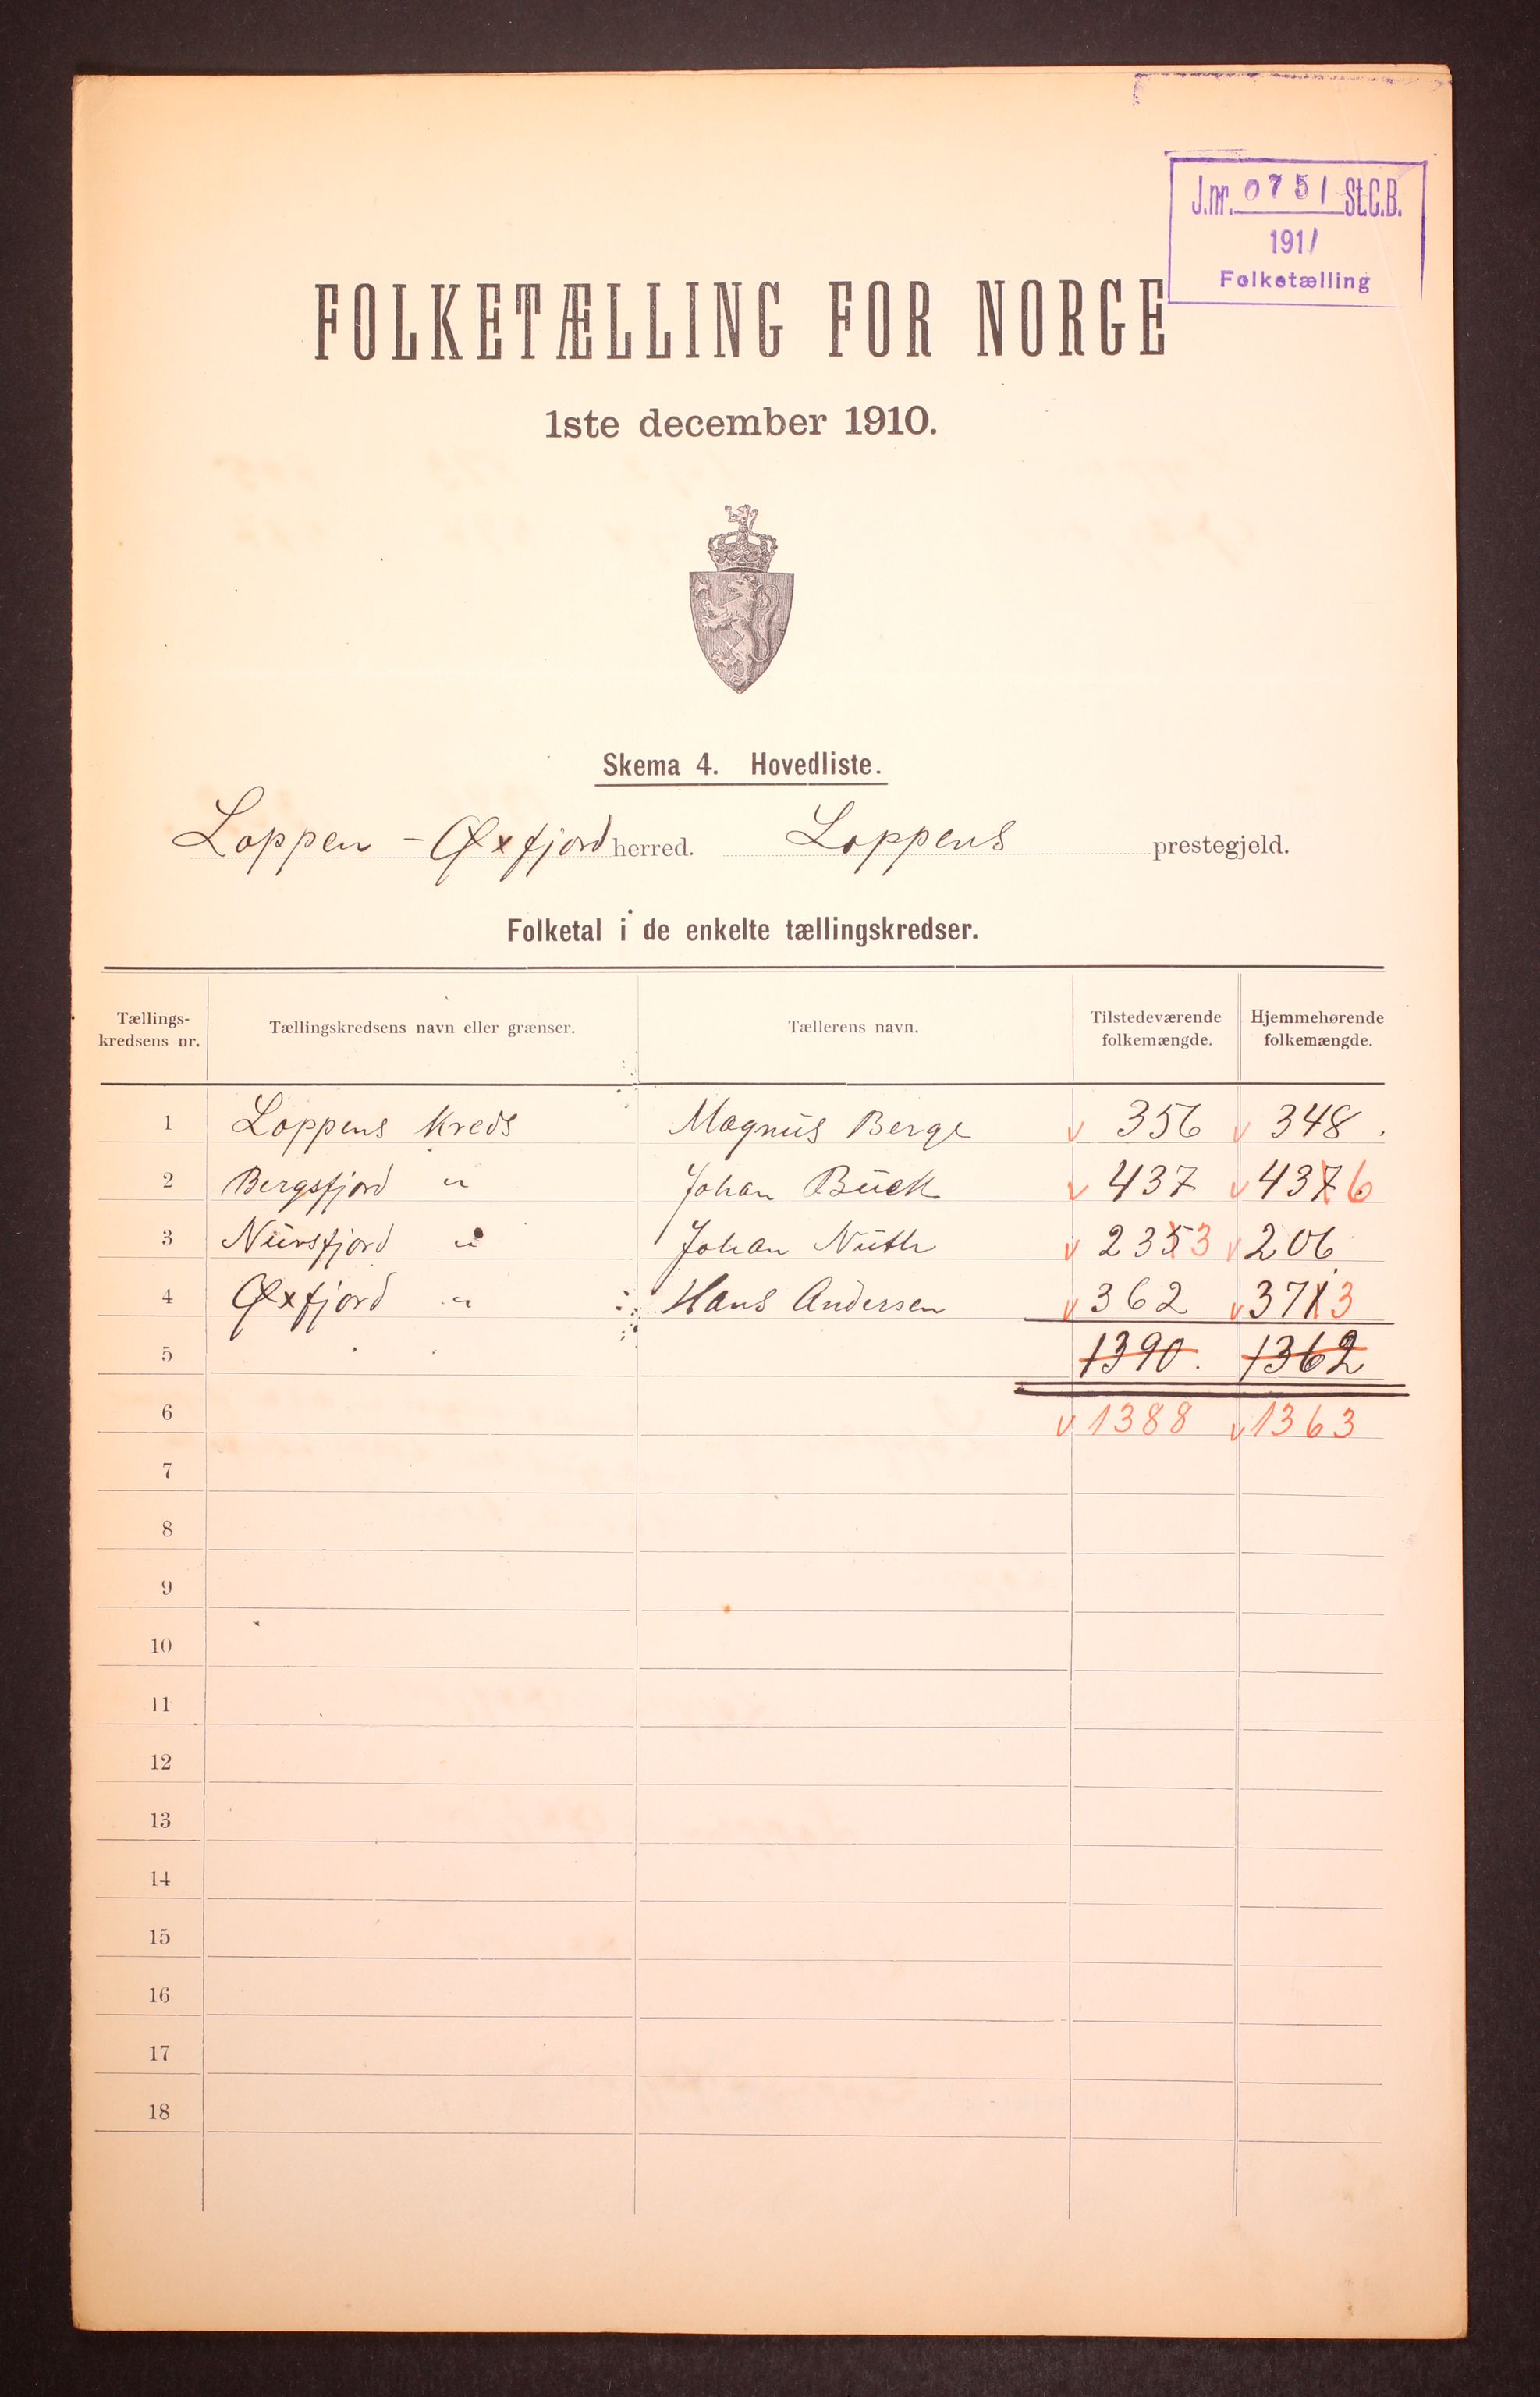 J.nr. 0751 St.C.B.
1911
Folketælling
FOLKETÆLLING FOR NORGE
1ste december 1910.
Skema 4. Hovedliste.
Loppen - Øxfjord herred. Loppens prestegjeld.
Folketal i de enkelte tællingskredser.
Tællings-kredsens nr. Tællingskredsens navn eller grænser. Tællerens navn. Tilstedeværende folkemængde. Hjemmehørende folkemængde.
1 Loppens Kreds Magnus Berge v 356 v 348.
2 Bergsfjord " Johan Buck v 437 v 437 6
3 Nuvsfjord " Johan Nuth v 235 3 v 206
4 Øxfjord " Hans Andersen v 362 v 371 3
5 1390. 1362
6 v 1388 v 1363
7
8
9
10
11
12
13
14
15
16
17
18